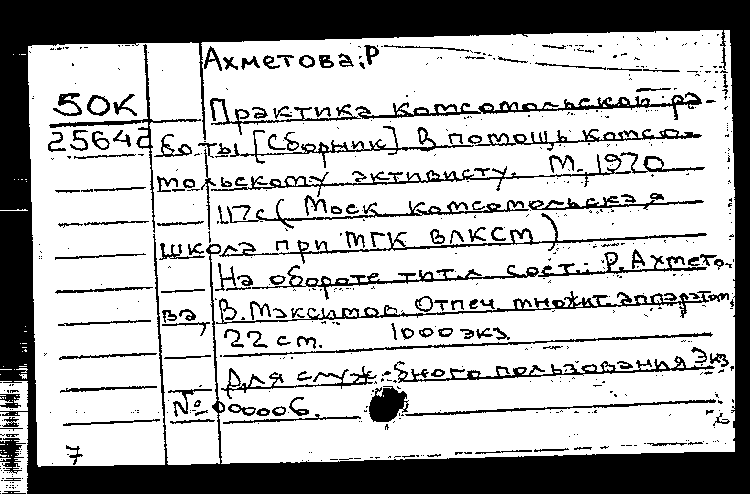 Ахметова, Р
50К
25642
Практика комсомольской ра-
боты [Сборник] В помощь комсо-
мольскому активисту. М., 1970
117с (Моск комсомольская
школа при МГК ВЛКСМ)
На обороте тит.л сост.: Р.Ахмето-
ва, В.Максимов. Отпеч. множит. аппаратом
22 см. 1000 экз
Для служебного пользования Экз.
№ 000006.
7